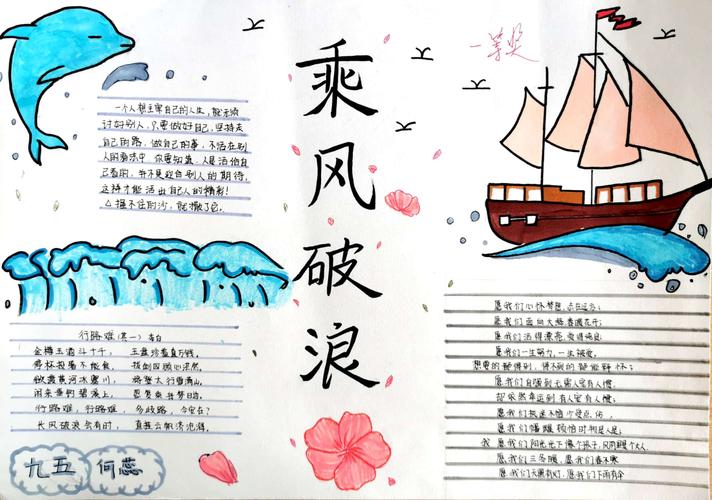 乘风破浪
一等奖
一个人想主宰自己的人生，就无须
讨好别人，只要做好自己，坚持走
自己的路，做自己的事，不活在别
人的看法中，你要知道，人是活给自
己看的，并不是迎合别人的期待，
这样才能活出自己人的精彩！
△握不住的沙，就撒了它。
行路难（其一）李白
金樽玉酒斗十千，玉盘珍羞直万钱。
停杯投箸不能食，拔剑四顾心茫然。
欲渡黄河冰塞川，将登太行雪满山。
闲来垂钓碧溪上，忽复乘舟梦日边。
行路难，行路难，多歧路，今安在？
长风破浪会有时，直挂云帆济沧海。
九五 何蕊
愿我们心怀梦想，志在远方；
愿我们面向大海春暖花开；
愿我们活得漂亮，
愿我们一生努力，一生被爱，
想要的都得到，得不到的都能释怀；
愿我们自强到无需人宠有人惯，
却依然幸运到有人宠有人惯；
愿我们执迷不悟少受点伤，
愿我们幡醒 时刚是人是；
愿我们阳光下像个孩子，风雨里个大人
愿我们三冬暖，愿我们春不寒
愿我们天黑有灯，愿我们下雨有伞